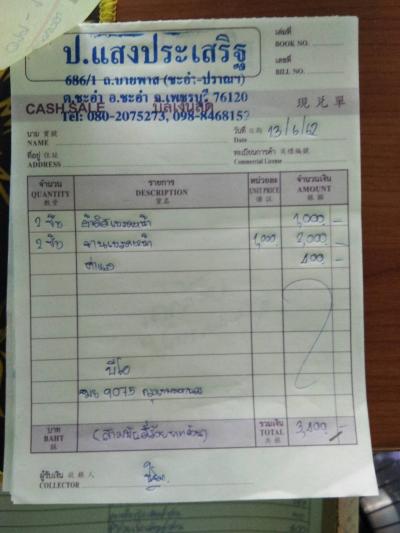 ป.แสงประเสริฐ
686/1 ถ.บายพาส (ชะอำ-ปราณฯ)
ต.ชะอำ อ.ชะอำ จ.เพชรบุรี 76120
Tel: 080-2075273, 098-8468152
เล่มที่
BOOK NO.
เลขที่
BILL NO.
CASH SALE บิลเงินสด 現兌單
นาม 寶號
NAME
วันที่ 日期 13/6/62
Date
ที่อยู่ 住址
ADDRESS
ทะเบียนการค้า
Commercial License
จำนวน QUANTITY 數量
รายการ DESCRIPTION 貨名
หน่วยละ UNIT PRICE
จำนวนเงิน AMOUNT
2 ชิ้น 1,000.-
2 ชิ้น จานเบรคหน้า 1,000 2,000.-
ค่าแรง 400.-
9075 กรุงเทพมหานคร
บาท BAHT
(สามพันสี่ร้อยบาทถ้วน)
รวมเงิน TOTAL 3,400.-
ผู้รับเงิน 收款人
COLLECTOR